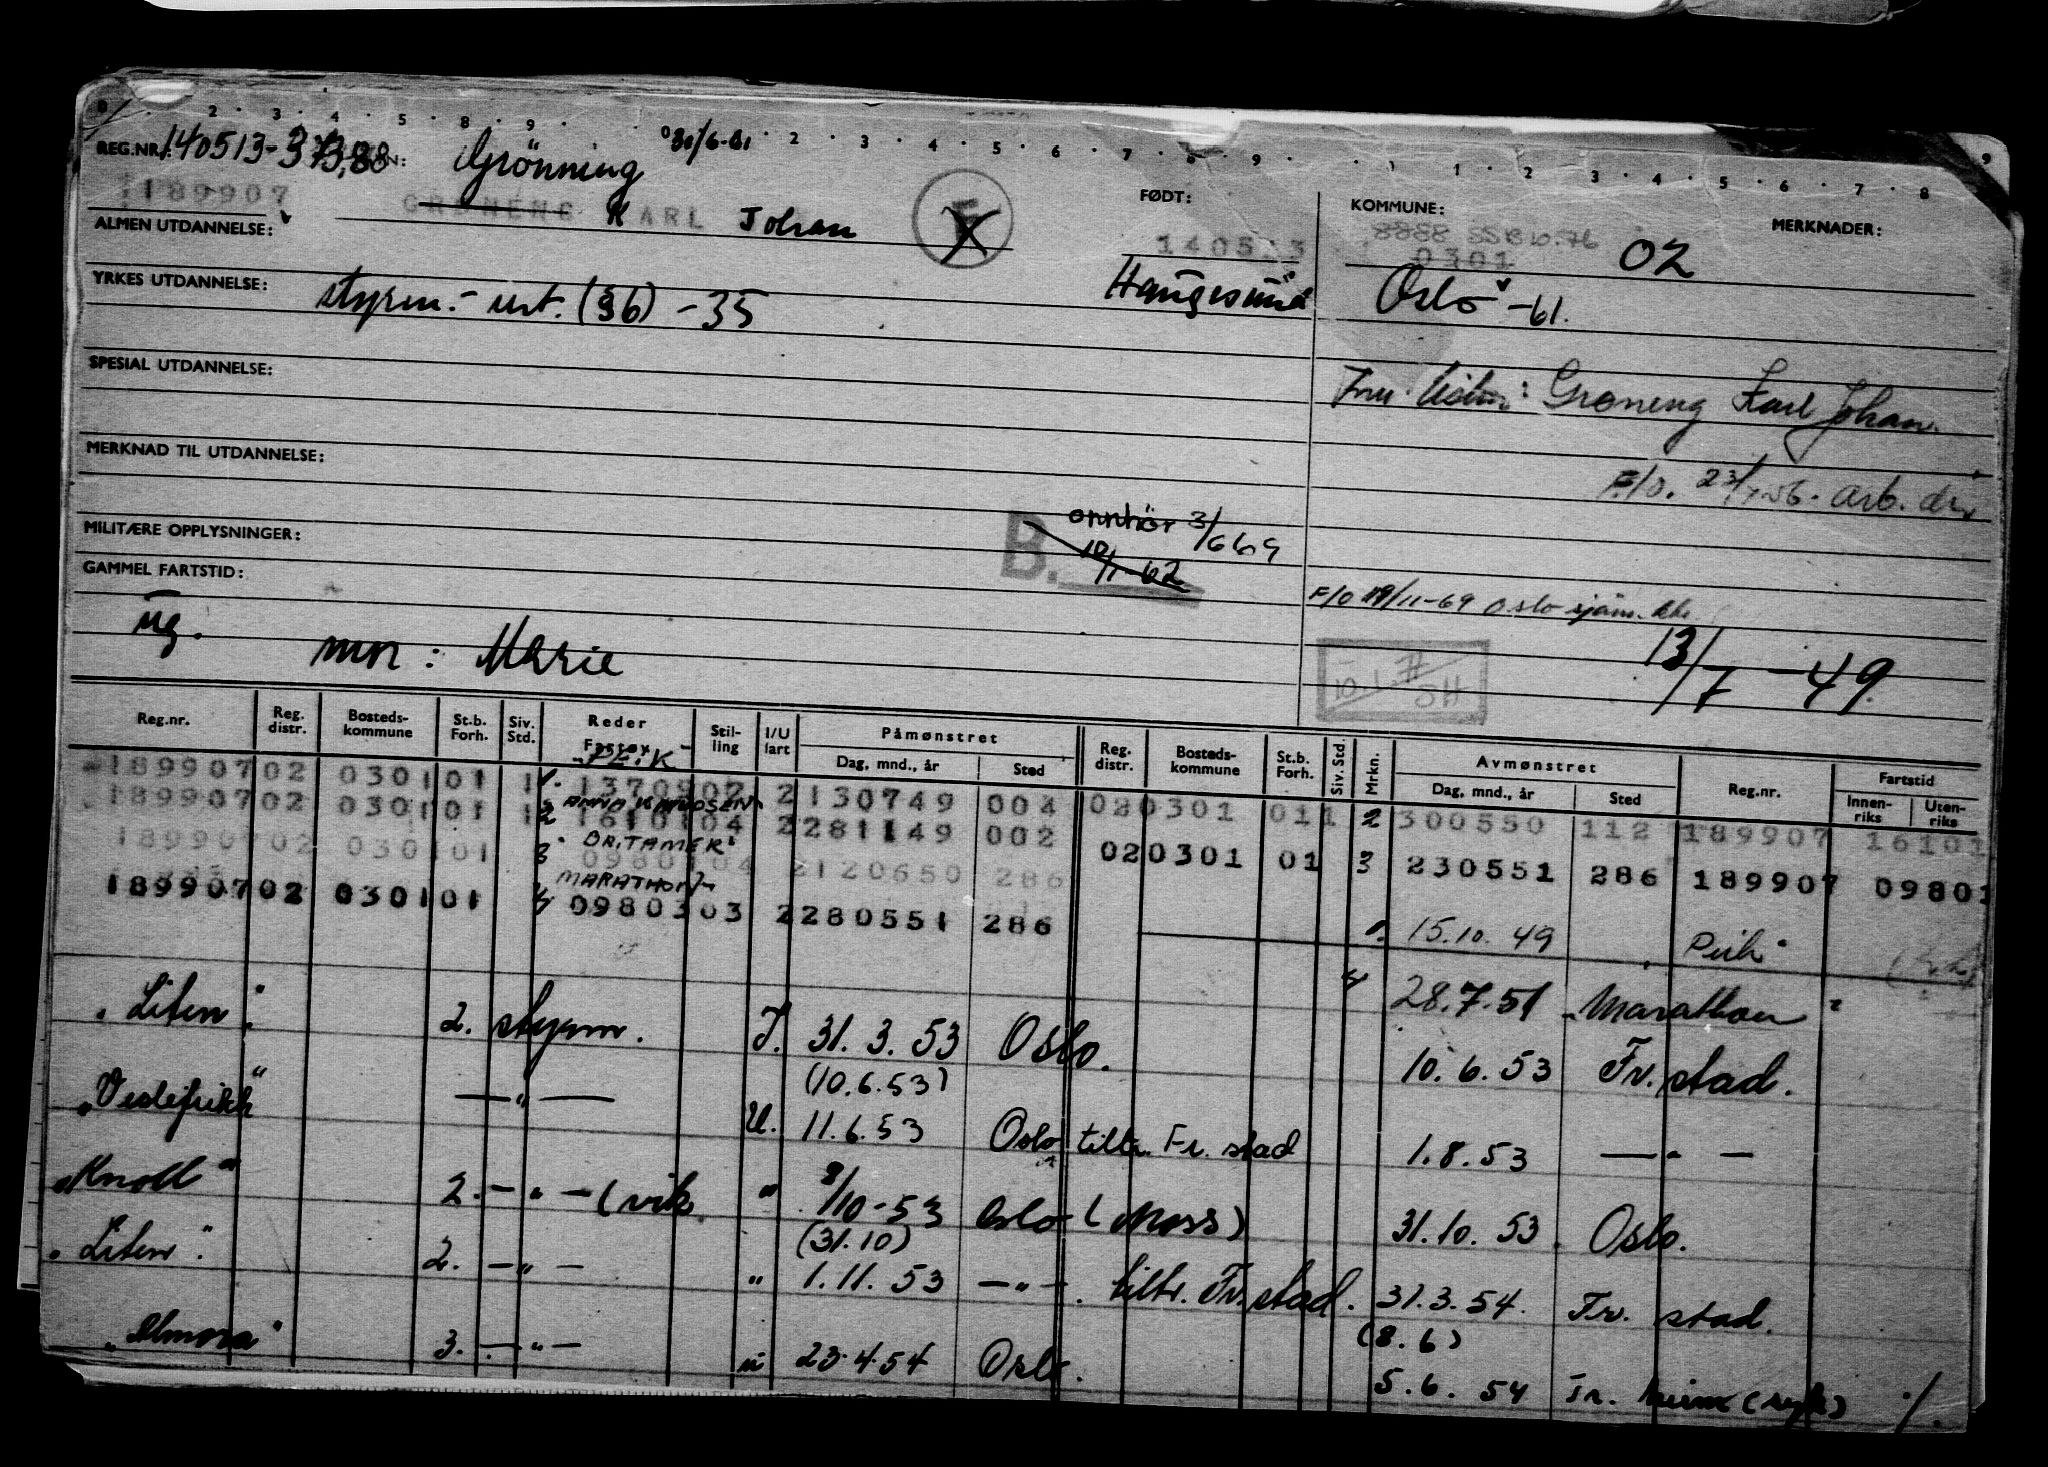 0 1 · 2 · 3 · 4 · 5 · · 8 · 9 · 0 30/6-61 · 2 · 3 · 4 · 5 · 6 · 7 · 8 · 9 · · 1 · 2 · 3 · 4 · 5 · 6 · 7 · 8 9
REG.NR.: 140513-37388 Grönning
189907 GRØNENG KARL Johan FØDT: KOMMUNE: MERKNADER:
8888 SSB 10.76
ALMEN UTDANNELSE: 140513 0301 02
YRKES UTDANNELSE: styrm.- utt. (§6) -35 Haugesund Oslo -61.
SPESIAL UTDANNELSE: Groneng Karl Johan.
MERKNAD TIL UTDANNELSE: F/O. arb. dir
MILITÆRE OPPLYSNINGER: B. 3/6 69
10/1-62
GAMMEL FARTSTID: F/O 19/11-69 Oslo sjøm. ktr.
ug. mn: Marie 13/7-49.
Reg.nr. Reg. distr. Bosteds-kommune St.b. Forh. Siv. Std. Reder Fartøy Stil-ling I/U fart Påmønstret Dag, mnd., år Sted Reg. distr. Bosteds-kommune St.b. Forh. Siv. Std. Mrkn. Avmønstret Dag, mnd., år Sted Reg.nr. Fartstid Innen-riks Uten-riks
"PEIK"
189907 02 0301 01 1 1. 1370902 2 130749 004 02 0301 01 1 2 300550 112 189907 16101
ANNA KNUDSEN
189907 02 0301 01 1 2 1610104 2 281149 002 02 0301 01 3 230551 286 189907 09801
"BRITAMER"
189907 02 0301 01 3 0980104 2 120650 286
"MARATHON"
189907 02 0301 01 4 0980303 2 280551 286 1. 15.10.49 "Peik"
4 28.7.51 "Marathon"
"Liten" 2. styrm. I. 31.3.53 Oslo. 10.6.53 Fr.stad.
(10.6.53)
"Veslefrikk" —"— U. 11.6.53 Oslo tiltr. Fr.stad 1.8.53 —"—
"Knoll" 2. —"— (vik. " 8/10-53 Oslo (Moss) 31.10.53. Oslo.
(31.10)
"Liten". 2. —"— " 1.11.53 —"—. tiltr. Fr.stad. 31.3.54. Fr. stad.
(8.6)
"Almora" 3. —"— u 23.4.54 Oslo. 5.6.54 Tr. heim (syk) ./.